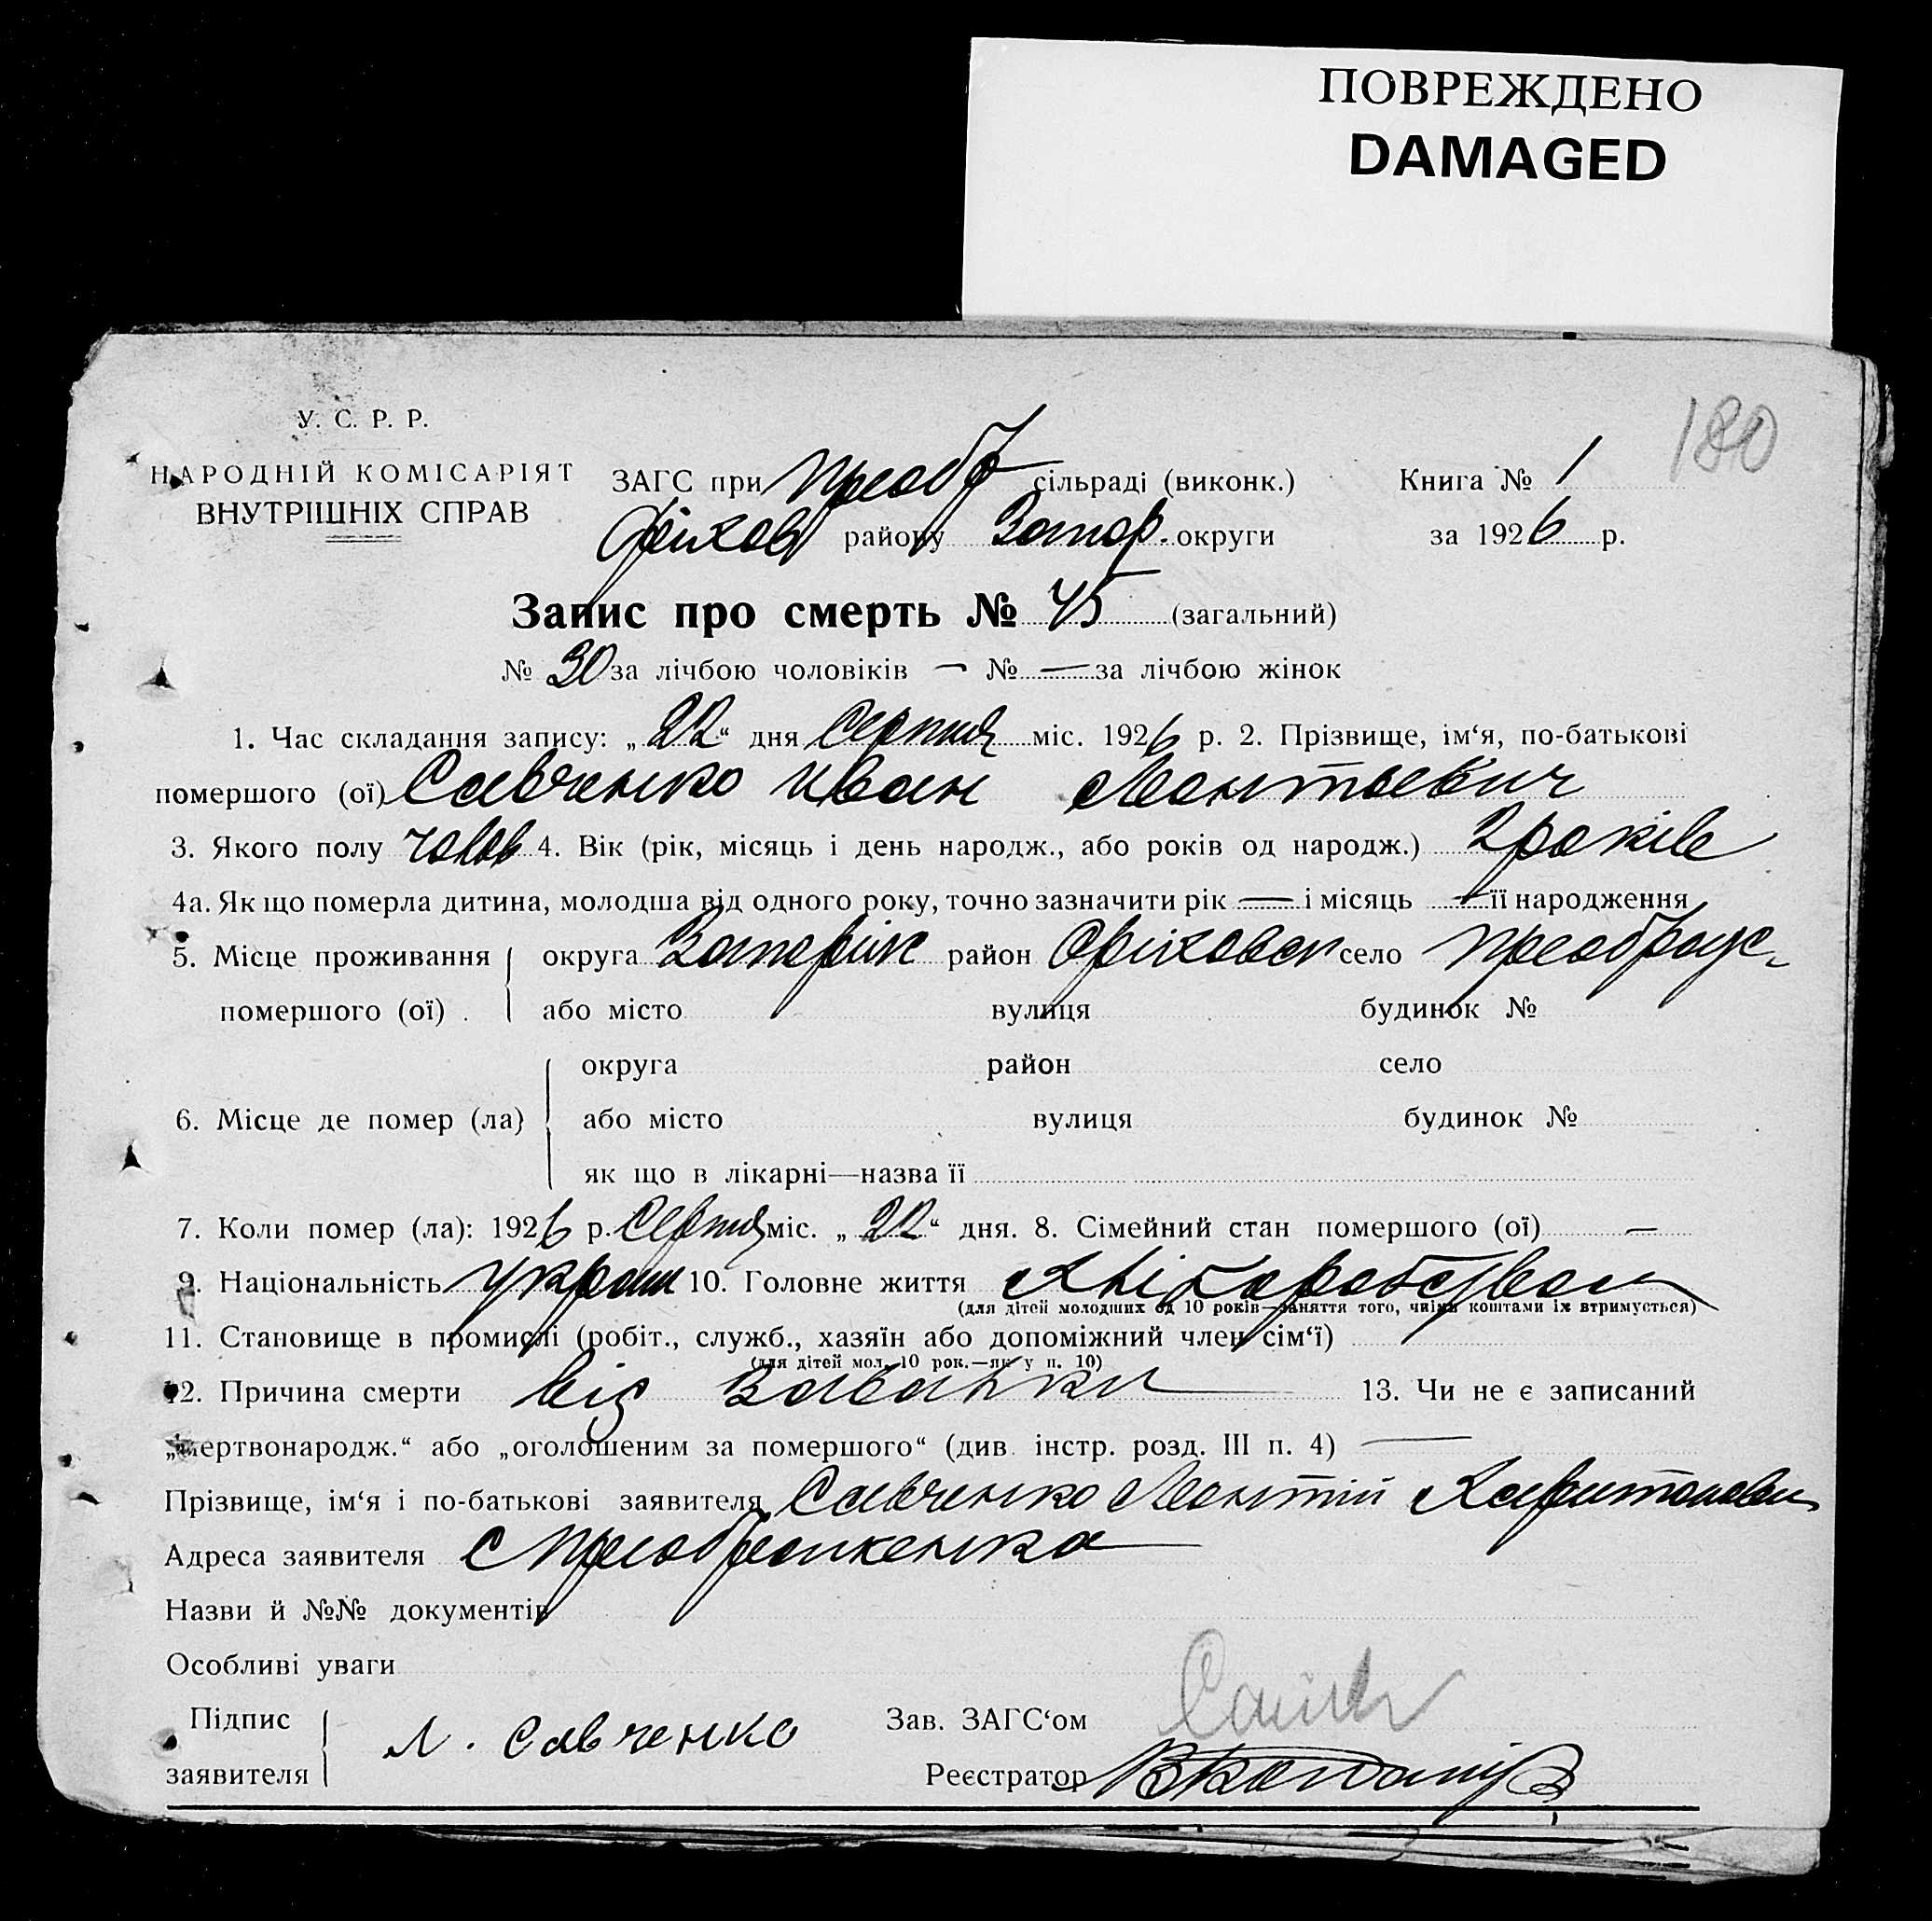 ПОВРЕЖДЕНО
DAMAGED
180
У. С. Р. Р.
НАРОДНІЙ КОМІСАРІЯТ
ВНУТРІШНІХ СПРАВ
ЗАГС при Преобр сільраді (виконк.) Книга № 1
Оріхов району Запор. округи за 1926 р.
Запис про смерть № 45 (загальний)
№ 30 за лічбою чоловіків — № — за лічбою жінок
1. Час складання запису: „22“ дня Серпня міс. 1926 р. 2. Прізвище, ім‘я, по-батькові
помершого (ої) Савченко Иван Леонтьевич
3. Якого полу чолов 4. Вік (рік, місяць і день народж., або років од народж.) 2 років
4а. Як що померла дитина, молодша від одного року, точно зазначити рік — і місяць — її народження
5. Місце проживання округа Запоріж район Оріховск село Преображ
помершого (ої) або місто вулиця будинок №
округа район село
6. Місце де помер (ла) або місто вулиця будинок №
як що в лікарні—назва її
7. Коли помер (ла): 1926 р. Серпня міс. „22“ дня. 8. Сімейний стан помершого (ої) —
9. Національність україн 10. Головне життя Хліборобством
(для дітей молодших од 10 років—заняття того, чиїми коштами їх втримується)
11. Становище в промислі (робіт., служб., хазяїн або допоміжний член сім‘ї)
(для дітей мол. 10 рок.—як у п. 10)
12. Причина смерти від 13. Чи не є записаний
„мертвонародж.“ або „оголошеним за помершого“ (див. інстр. розд. III п. 4) —
Прізвище, ім‘я і по-батькові заявителя Савченко Леонтій Харитонович
Адреса заявителя с Преображенка
Назви й №№ документів
Особливі уваги
Підпис
заявителя Л. Савченко
Зав. ЗАГС‘ом
Реєстратор